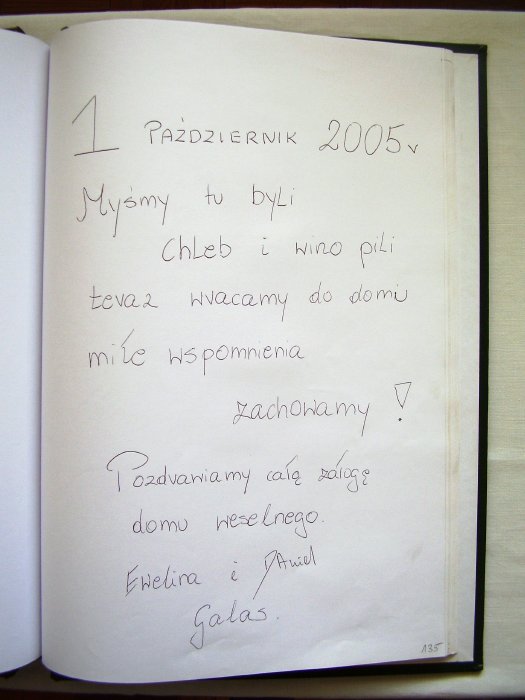 1 PAŹDZIERNIK 2005r
Myśmy tu byli
Chleb i wino pili
teraz wracamy do domu
miłe wspomnienia
zachowamy!
Pozdrawiamy całą załogę
domu weselnego.
Ewelina i Daniel
Galas.
135